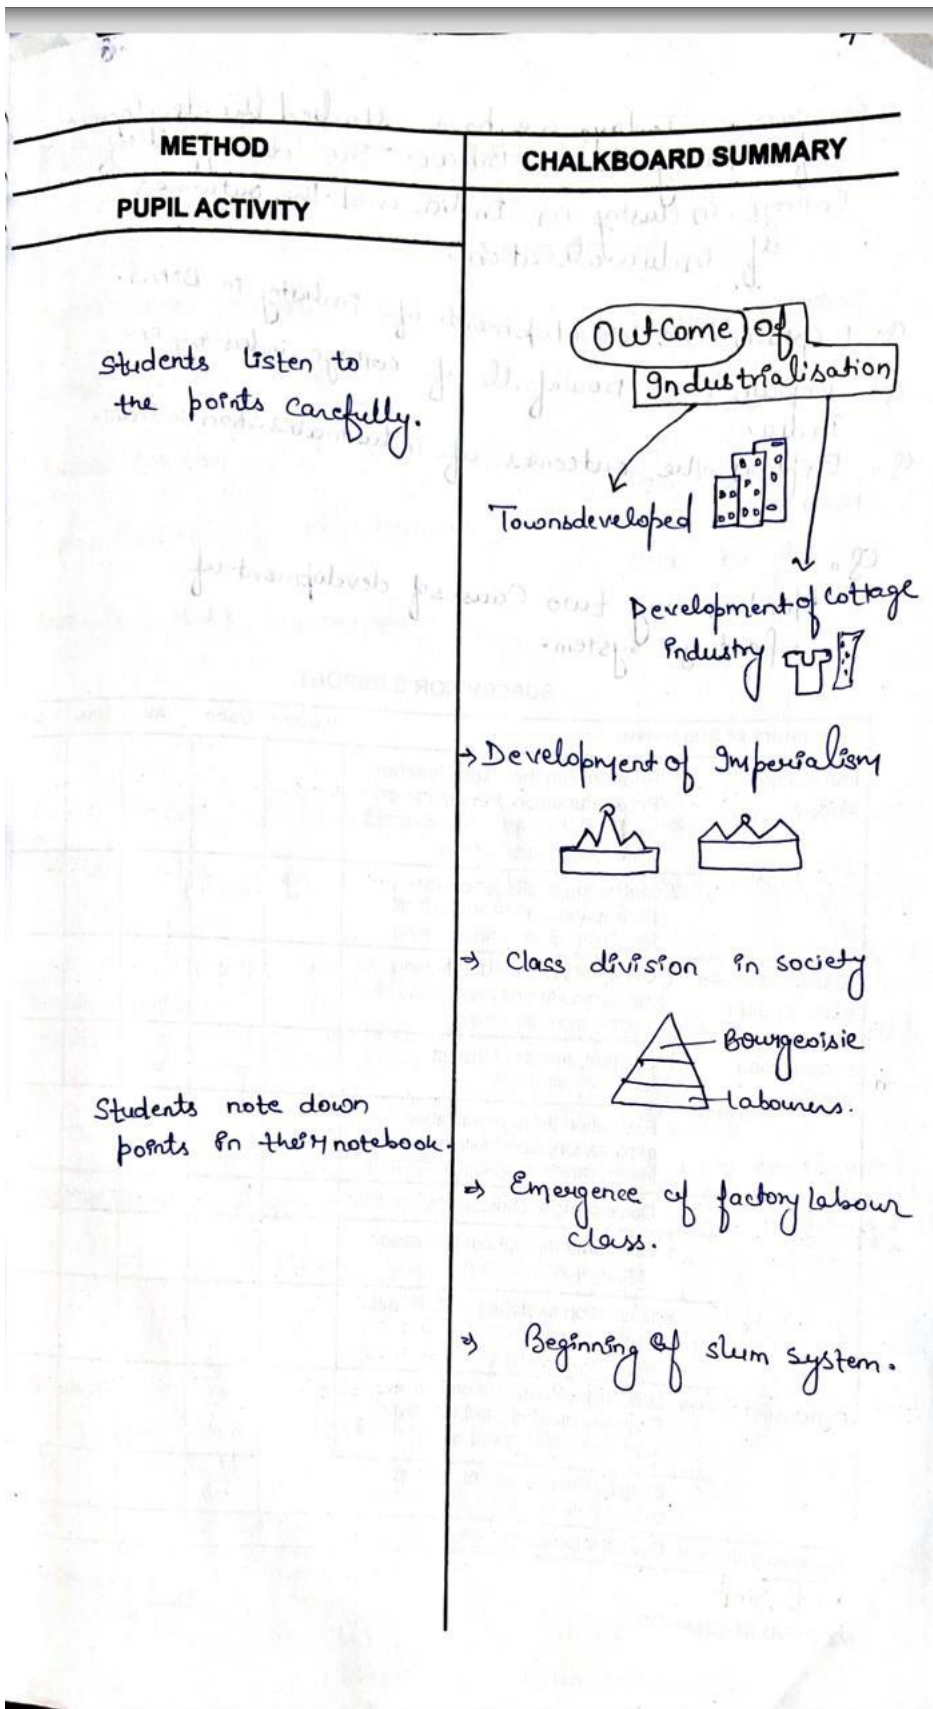 METHOD
PUPIL ACTIVITY
Students listen to
the points carefully.
Students note down
points in their notebook.
CHALKBOARD SUMMARY
Outcome of
Industrialisation
Towns developed
Development of Cottage
industry
→ Development of Imperialism
⇒ Class division in society
Bourgeoisie
labourers.
⇒ Emergence of factory labour
class.
⇒ Beginning of slum system.